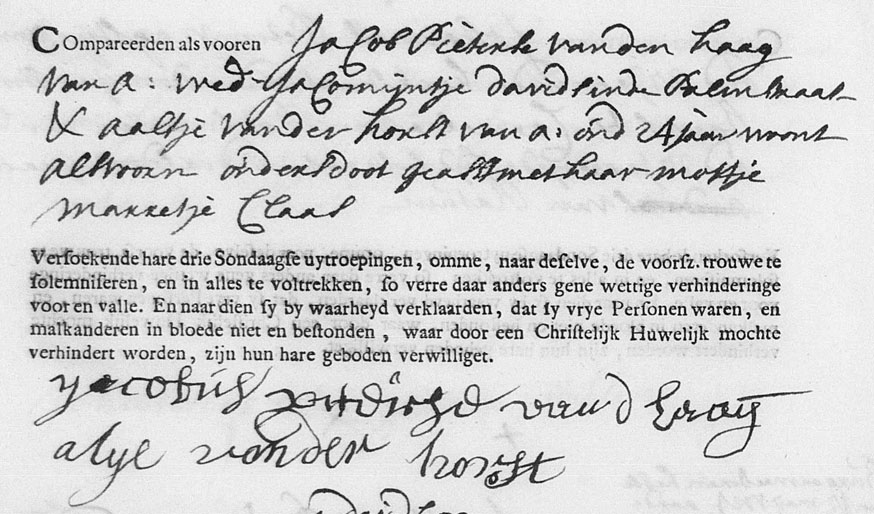 COmpareerden als vooren Jacob Pieterse van den haag
van A: wed Jacomijntje davids inde Palmstraat
& aaltje van der horst van A: oud 24 jaar woont
alsvooren ouders doot geast met haar mottje
marretje Claas
Versoekende hare drie Sondaagse uytroepingen, omme, naar deselve, de voorsz. trouwe te
solemniseren, en in alles te voltrekken, so verre daar anders gene wettige verhinderinge
voor en valle. En naar dien sy by waarheyd verklaarden, dat sy vrye Personen waren, en
malkanderen in bloede niet en bestonden, waar door een Christelijk Huwelijk mochte
verhindert worden, zijn hun hare geboden verwilliget.
Jacobus van d haag
alye vander horst